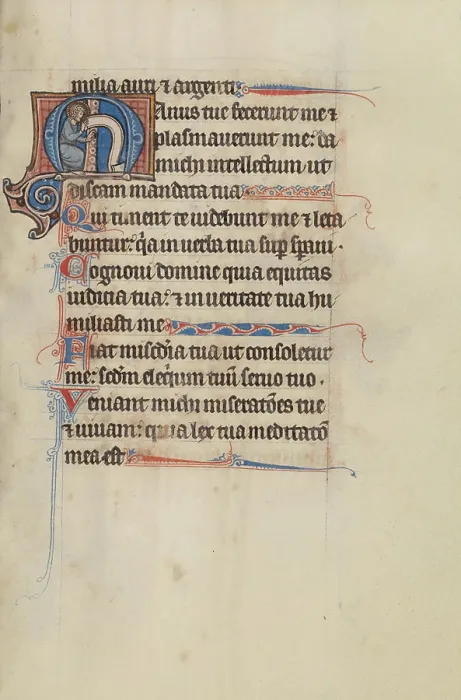 milia auri ⁊ argenti
Manus tue fecerunt me ⁊
plasmauerunt me: da
michi intellectum ut
discam mandata tua
Qui timent te uidebunt me ⁊ leta
buntur: q̄a in uerba tua sup̄ sp̄aui.
Cognoui domine quia equitas
iudicia tua: ⁊ in ueritate tua hu
miliasti me
Fiat mise͞dia tua ut consoletur
me: sc͞dm eloquium tuū seruo tuo.
Veniant michi miserat͞oes tue
⁊ uiuam: quia lex tua meditat͞o
mea est